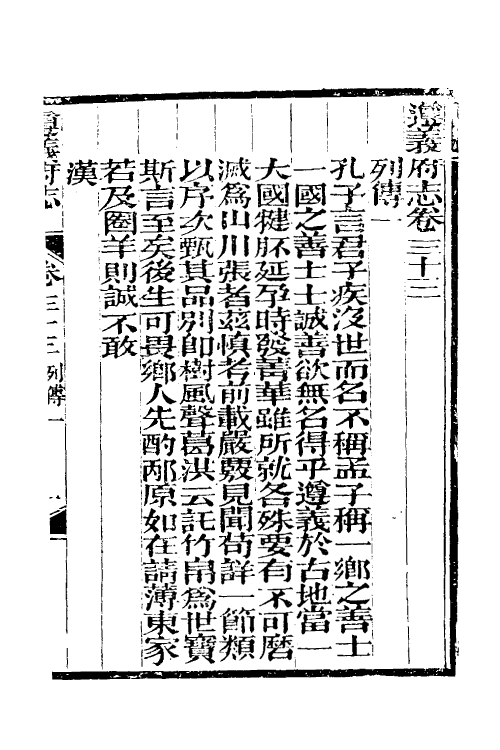 遵義府志卷三十三
列傳一
孔子言君子疾沒世而名不稱孟子稱一鄉之善士
一國之善士士誠善欲無名得乎遵義於古地當一
大國犍牂延孕時發菁華雖所就各殊要有不可磨
滅爲山川張者兹慎考前載嚴覈見聞苟詳一節類
以序次甄其品別卽樹風聲葛洪云託竹帛爲世寶
斯言至矣後生可畏鄉人先酌邴原如在請薄東家
若及圈羊則誠不敢
漢
遵義府志
卷三十三 列傳一
一